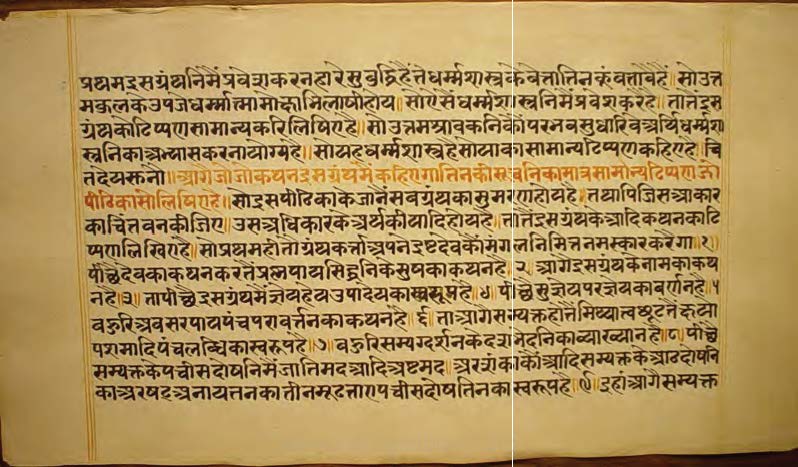 प्रथमइसग्रंथनिमैंप्रवेशकरनहारेसुबुद्धिहैंतेधर्म्मशास्त्रकेवेत्तातिनकूंबतावैहैं॥सोउत्त
मकुलकेउपजेधर्म्मात्मामोक्षाभिलाषीहोय॥सोऐसेंधर्म्मशास्त्रनिमैंप्रवेशकरैहै॥तातैंइस
ग्रंथकोटिप्पणसामान्यकरिलिषिएहै॥सोउत्तमश्रावकनिकौंपरभवसुधारिवेअर्थिधर्म्मशा
स्त्रनिकाअभ्यासकरनायोग्यहै॥सोयहधर्म्मशास्त्रहैसोयाकासामान्यटिप्पणकहिएहै॥चि
तदेयसुनौ॥आगैजोजोकथनइसग्रंथमैंकहिएगातिनकीसबनिकामात्रसामान्यटिप्पणकों
पीठिकासोलिषिएहै॥सोइसपीठिकाकेजानैंसबग्रंथकासुमरणहोयहै॥तथापिजिसआकार
काचिंतवनकीजिए॥उसअधिकारकेअर्थकीयादिहोयहै॥तातैंइसग्रंथकेआदिकथनकाटि
प्पणलिखिएहै॥सोप्रथमहीतोग्रंथकर्त्ताअपनेइष्टदेवकौंमंगलनिमित्तनमस्कारकरैगा॥१॥
पीछैदेवकाकथनकरतेप्रलयपायसिद्धनिकेसुषकाकथनहै॥२॥आगेइसग्रंथकेनामकाकथ
नहै॥३॥तापीछैइसग्रंथमैंज्ञेयहेयउपादेयकास्वरूपहै॥४॥पीछैसुज्ञेयपरज्ञेयकावर्णनहै॥५
बहुरिअवसरपायपंचपरावर्त्तनकाकथनहै॥६॥ताआगेसम्यक्तहोतैंमिथ्यात्वछूटतैंक्षयो
पशमादिपंचलब्धिकास्वरूपहै॥७॥बहुरिसम्यग्दर्शनकेदशभेदनिकाव्याख्यानहै॥८॥पीछै
सम्यक्तकेपचीसदोषनिमैंजातिमदआदिअष्टमद॥अरशंकाकांक्षाआदिसम्यक्तकेआठदोषनि
काअरषटअनायत्तनकातीनमूढतातापचीसदोषतिनकास्वरूपहै॥९॥इहांआगैसम्यक्त